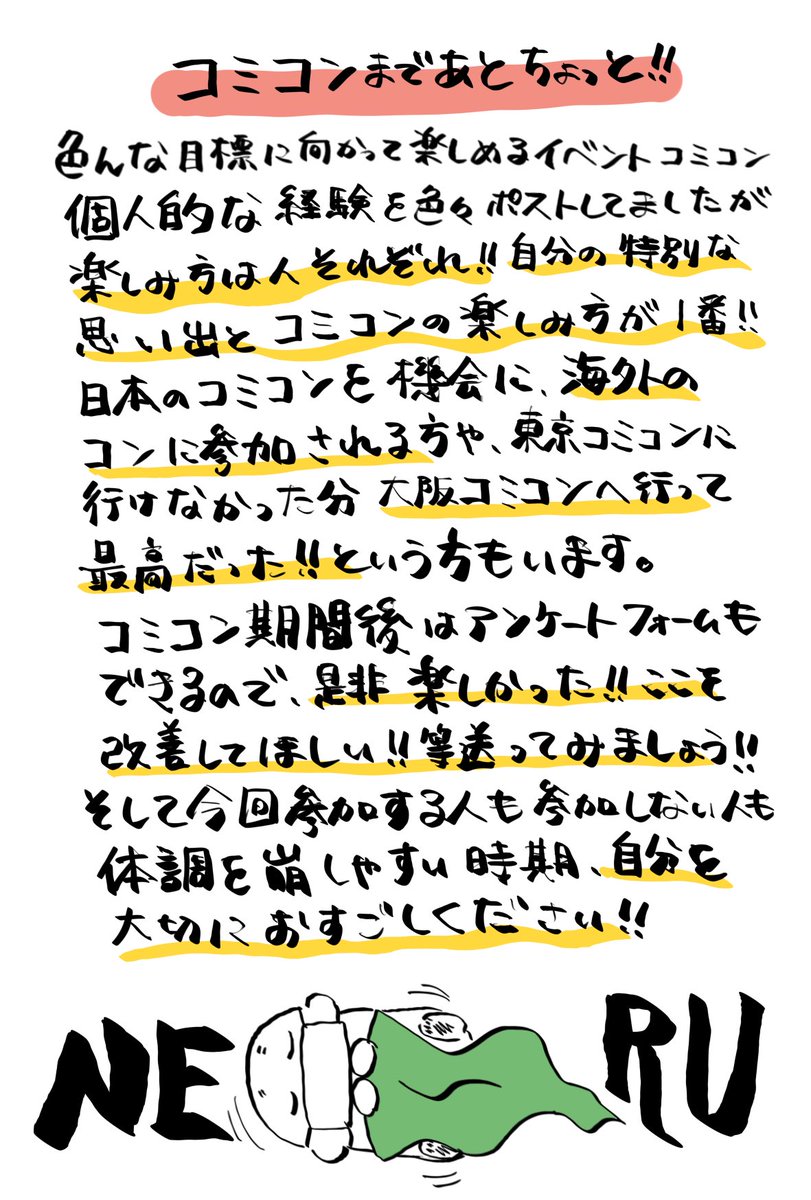 コミコンまであとちょっと!!
色んな目標に向かって楽しめるイベントコミコン
個人的な経験を色々ポストしてましたが
楽しみ方は人それぞれ!!自分の特別な
思い出とコミコンの楽しみ方が1番!!
日本のコミコンを機会に、海外の
コンに参加される方や、東京コミコンに
行けなかった分大阪コミコンへ行って
最高だった!!という方もいます。
コミコン期間後はアンケートフォームも
できるので、是非楽しかった!!ここを
改善してほしい!!等送ってみましょう!!
そして今回参加する人も参加しない人も
体調を崩しやすい時期、自分を
大切におすごしください!!
NERU